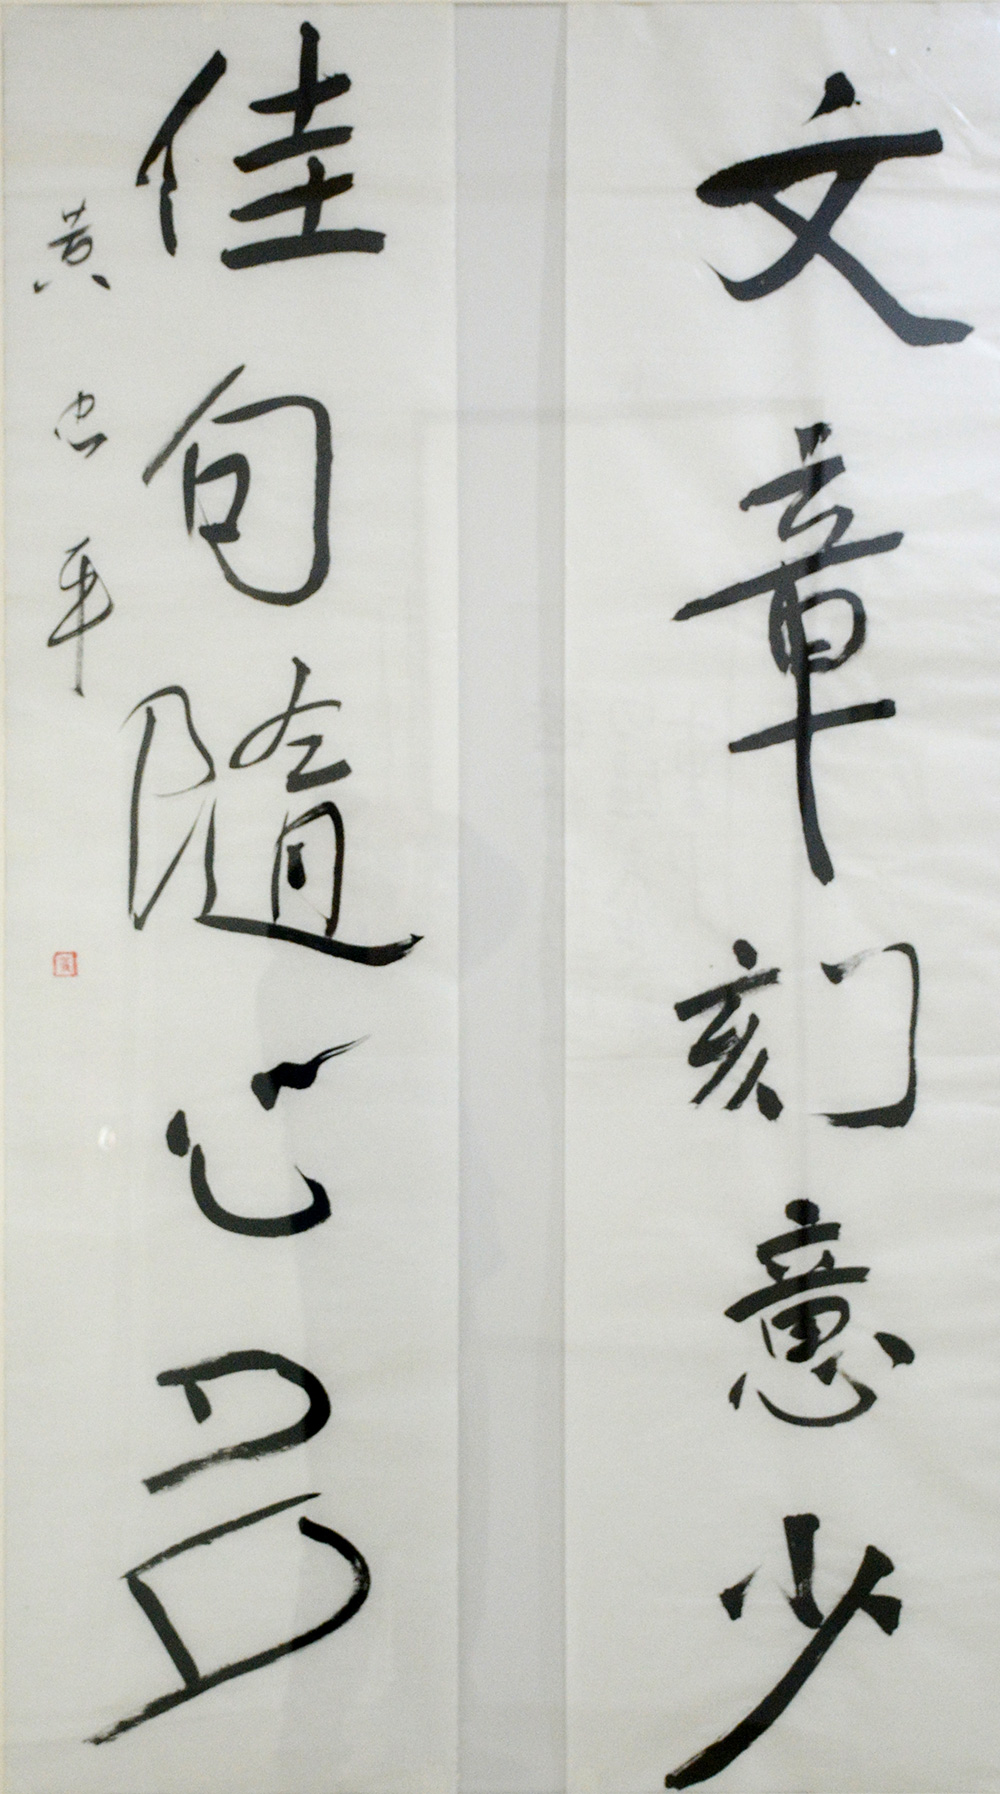 文章刻意少
佳句隨心
黄忠平